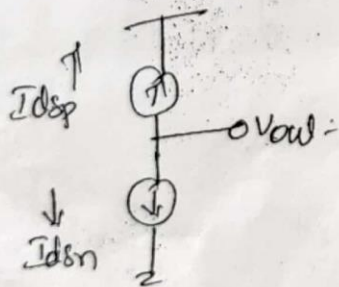 Idsp
Vout
Idsn